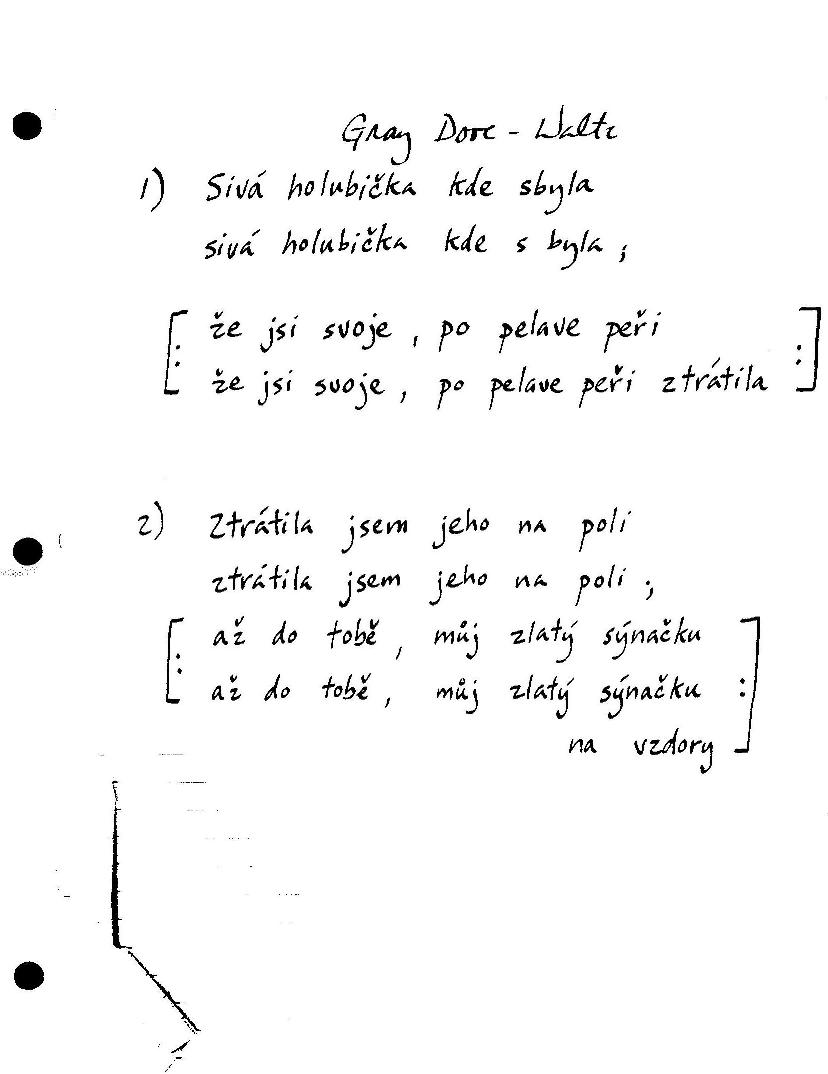 Gray Dove - Waltz
1) Sivá holubička kde sbyla
sivá holubička kde s byla ;
[: že jsi svoje , po pelave peři
že jsi svoje , po pelave peři ztrátila :]
2) Ztrátila jsem jeho na poli
ztrátila jsem jeho na poli ;
[: až do tobě , můj zlatý sýnačku
až do tobě , můj zlatý sýnačku :]
na vzdory